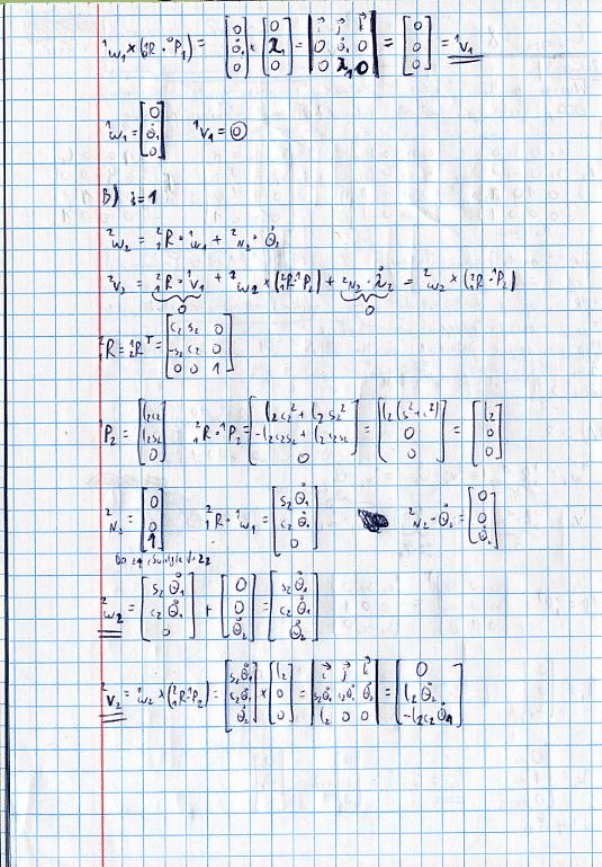 ¹w₁ × (¹₀R · ⁰P₁) = [0; θ̇₁; 0] × [0; λ₁; 0] = |i⃗ j⃗ k⃗; 0 θ̇₁ 0; 0 λ₁ 0| = [0; 0; 0] = ¹v₁
¹w₁ = [0; θ̇₁; 0] ¹v₁ = 0
B) i=1
²w₂ = ²₁R · ¹w₁ + ²N₂ · θ̇₂
²v₂ = ²₁R · ¹v₁ + ²w₂ × (²₁R · ¹P₂) + ²N₂ · λ̇₂ = ²w₂ × (²₁R · ¹P₂)
0 0
²₁R = ¹₂Rᵀ = [c₂ s₂ 0; -s₂ c₂ 0; 0 0 1]
¹P₂ = [l₂c₂; l₂s₂; 0] ²₁R · ¹P₂ = [l₂c₂² + l₂s₂²; -l₂c₂s₂ + l₂c₂s₂; 0] = [l₂(s²+c²); 0; 0] = [l₂; 0; 0]
²N₂ = [0; 0; 1] ²₁R · ¹w₁ = [s₂θ̇₁; c₂θ̇₁; 0] ²N₂ · θ̇₂ = [0; 0; θ̇₂]
²w₂ = [s₂θ̇₁; c₂θ̇₁; 0] + [0; 0; θ̇₂] = [s₂θ̇₁; c₂θ̇₁; θ̇₂]
²v₂ = ²w₂ × (²₁R · ¹P₂) = [s₂θ̇₁; c₂θ̇₁; θ̇₂] × [l₂; 0; 0] = |i⃗ j⃗ k⃗; s₂θ̇₁ c₂θ̇₁ θ̇₂; l₂ 0 0| = [0; l₂θ̇₂; -l₂c₂θ̇₁]